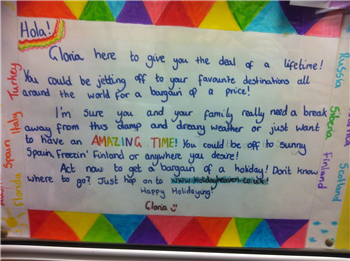 Hola!
Gloria here to give you the deal of a lifetime!
You could be jetting off to your favourite destinations all
around the world for a bargain of a price!
I'm sure you and your family really need a break
away from this damp and dreary weather or just want
to have an AMAZING TIME! You could be off to sunny
Spain, Freezin' Finland or anywhere you desire!
Act now to get a bargain of a holiday! Don't know
where to go? Just hop on to www.Holidayheaven.co.uk!
Happy Holidaying!
Gloria
Turkey
Italy
Spain
Florida
Russia
Siberia
Finland
Scotland